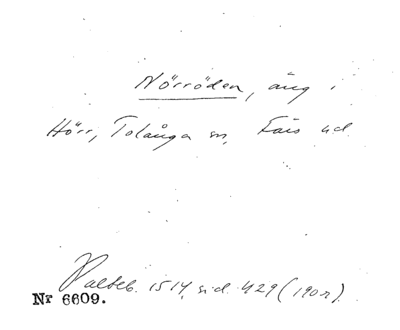 Nörröden, äng i
Hörr, Tolånga sn, Färs hd.
1514, sid. 429 (190r).
Nr 6609.